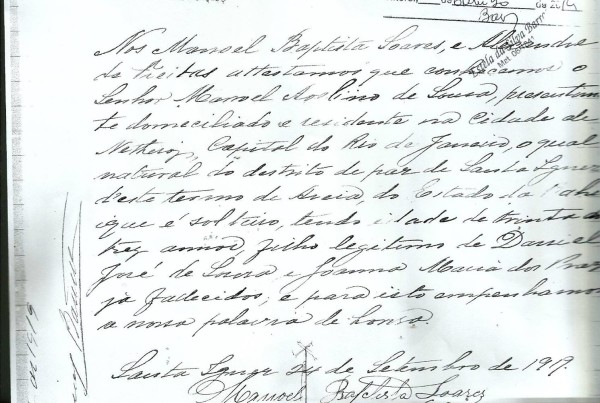 de 20
Nos Manoel Baptista Soares, e Alexandre
de Freitas attestamos que conhecemos o
Senhor Manoel Avelino de Souza, presentemen
te domiciliado e residente na cidade de
Netheroy, Capital do Rio de Janeiro, o qual
natural do districto de paz de Santa Ignez
deste termo de Areia, do Estado da Bahi
que é solteiro, tendo idade de trinta e
trez annos filho legitimo de Daniel
José de Souza e Joanna Maria dos
ja fallecidos; e para isto empenhamos
a nossa palavra de honra.
Santa Ignez 24 de Setembro de 1919.
Manoel Baptista Soares